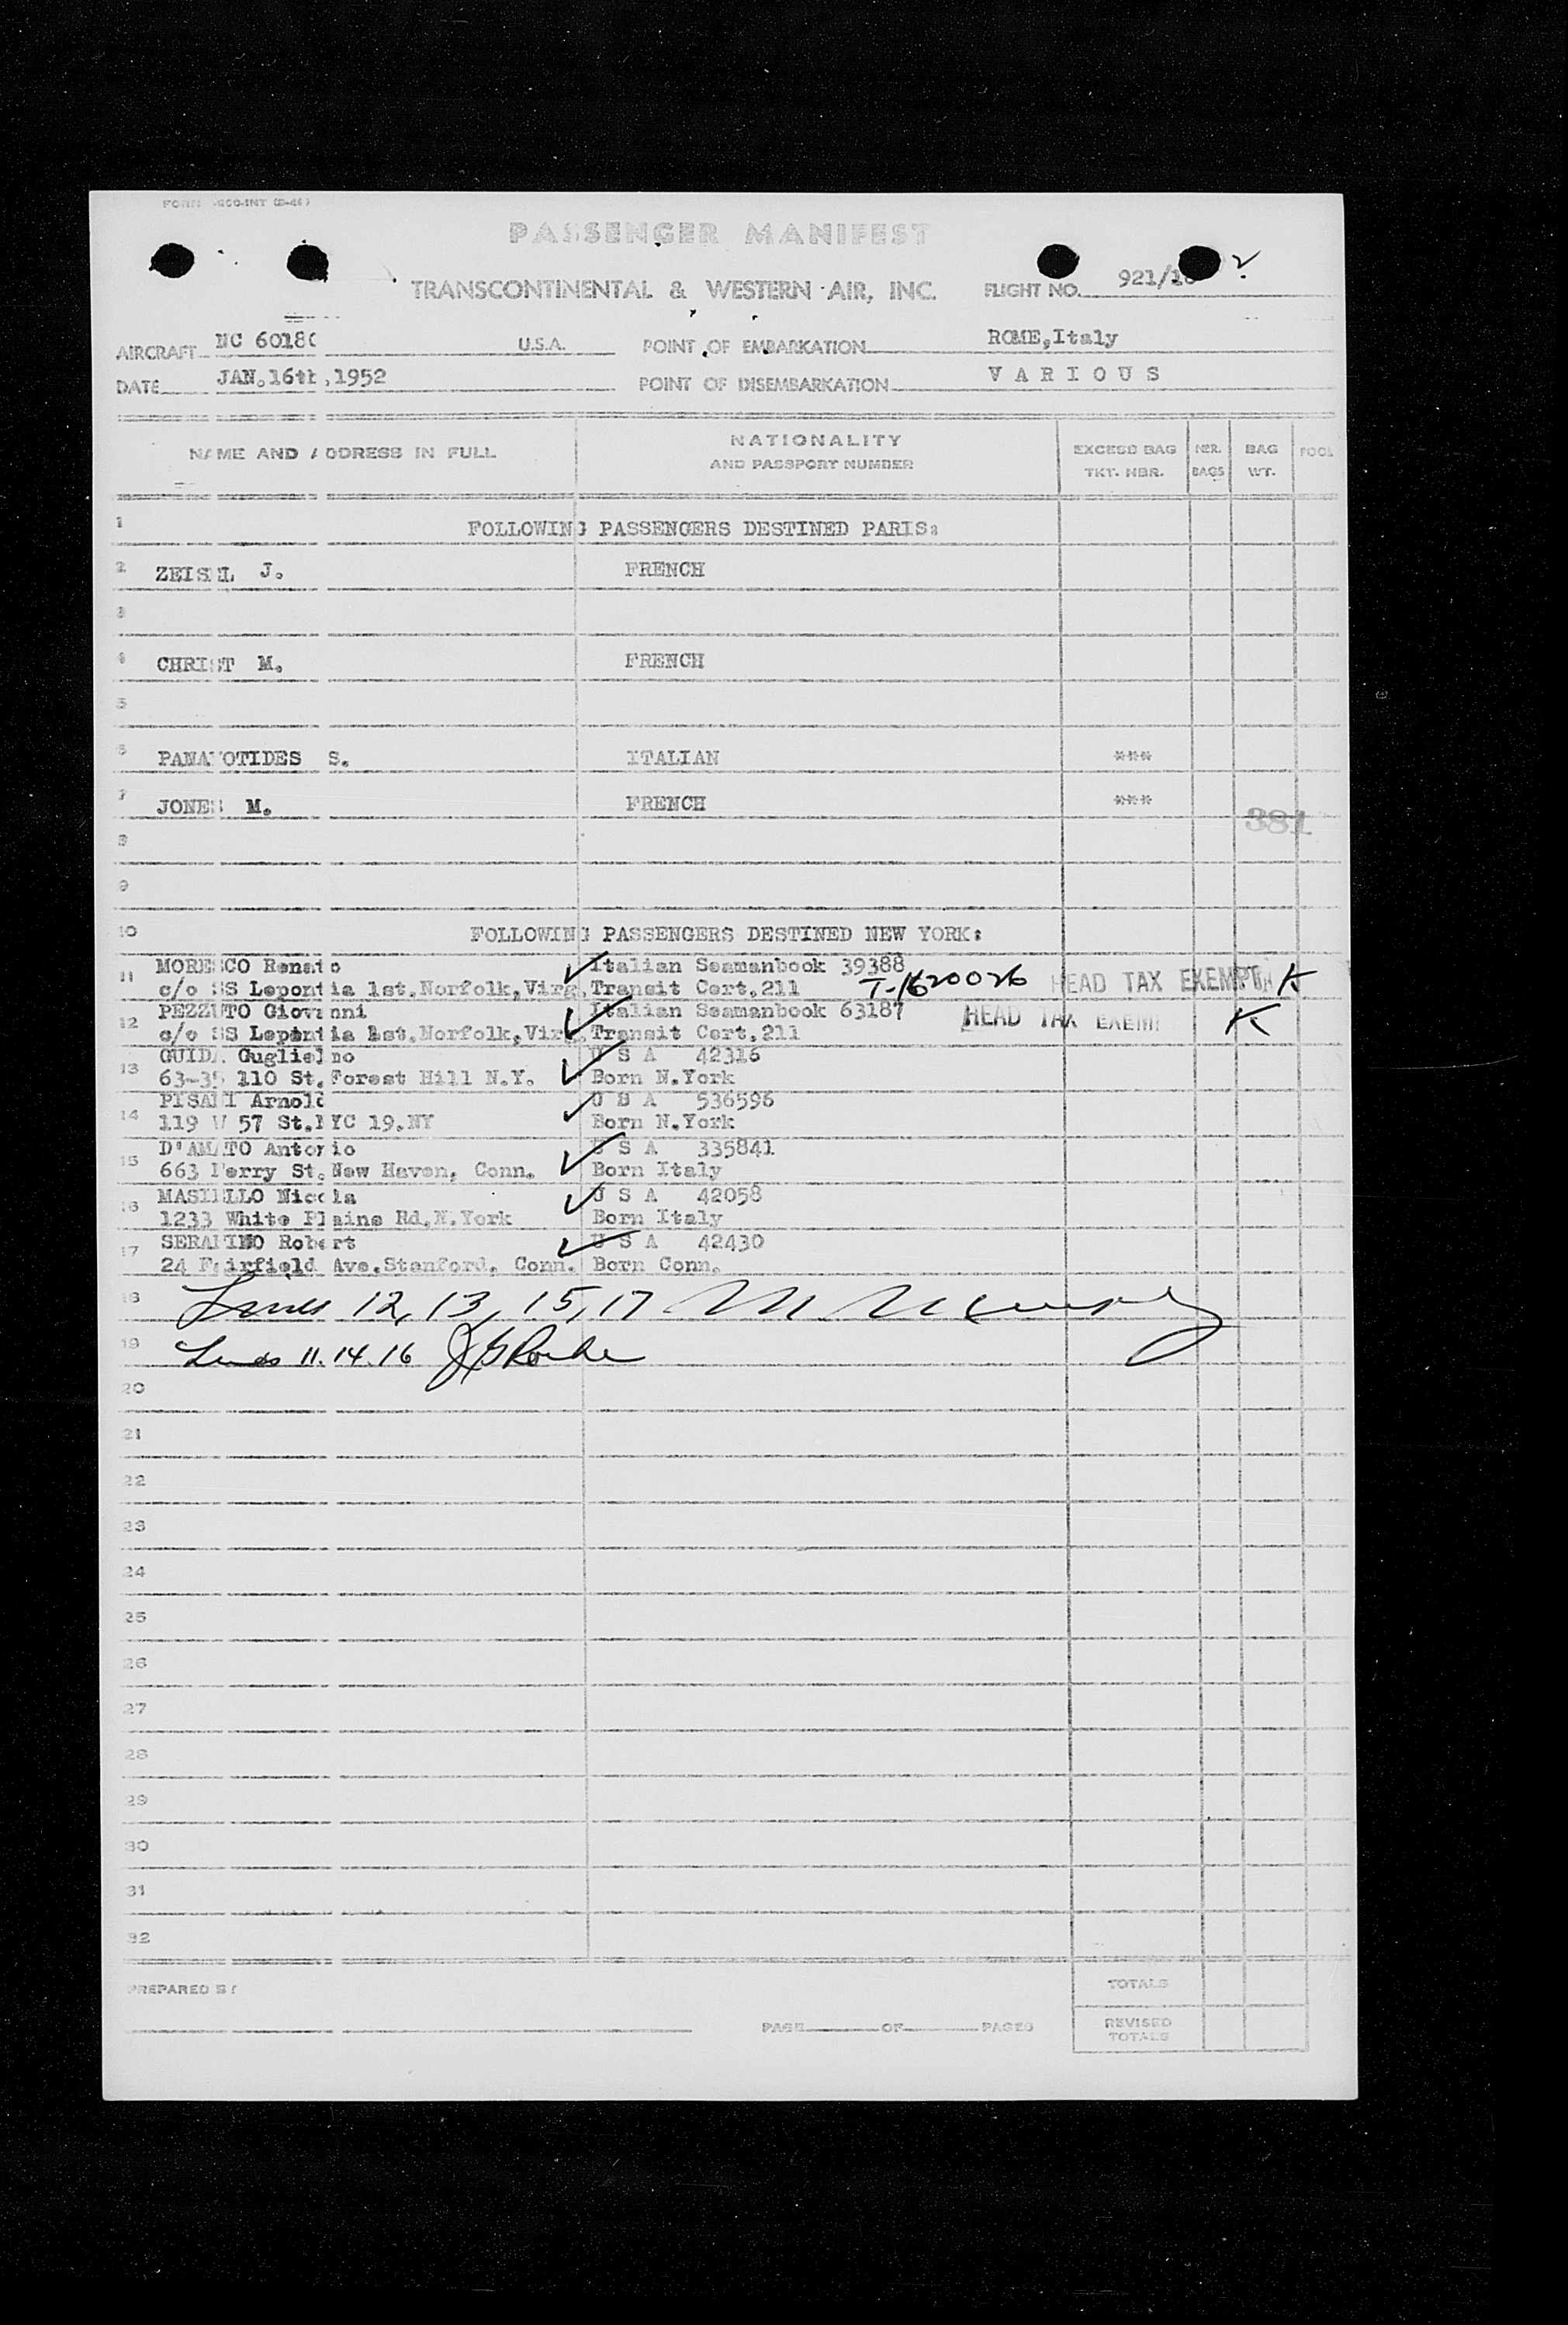 PASSENGER MANIFEST
TRANSCONTINENTAL & WESTERN AIR, INC. FLIGHT NO. 921/16
AIRCRAFT NC 6018C U.S.A. POINT OF EMBARKATION ROME,Italy
DATE JAN.16th,1952 POINT OF DISEMBARKATION VARIOUS
NAME AND ADDRESS IN FULL NATIONALITY AND PASSPORT NUMBER EXCESS BAG TKT. NBR. NBR. BAGS BAG WT. POOL
1 FOLLOWING PASSENGERS DESTINED PARIS:
2 ZEISEL J. FRENCH
3
4 CHRIST M. FRENCH
5
6 PANAYOTIDES S. ITALIAN ***
7 JONES M. FRENCH ***
381
8
9
10 FOLLOWING PASSENGERS DESTINED NEW YORK:
11 MORESCO Renato Italian Seamanbook 39388
c/o SS Lepontia 1st.Norfolk,Virg. Transit Cert.211 T-1620026 HEAD TAX EXEMPT K
12 PEZZUTO Giovanni Italian Seamanbook 63187 HEAD TAX EXEMP K
c/o SS Lepontia 1st.Norfolk,Virg. Transit Cert.211
13 GUIDA Guglielmo U S A 42316
63-35 110 St.Forest Hill N.Y. Born N.York
14 PISANI Arnold U S A 536596
119 W 57 St.NYC 19.NY Born N.York
15 D'AMATO Antonio U S A 335841
663 Ferry St.New Haven, Conn. Born Italy
16 MASIELLO Nicola U S A 42058
1233 White Plains Rd,N.York Born Italy
17 SERAFINO Robert U S A 42430
24 Fairfield Ave.Stanford, Conn. Born Conn.
18 Lines 12, 13, 15, 17
19 Lines 11. 14. 16
20
21
22
23
24
25
26
27
28
29
30
31
32
PREPARED BY TOTALS
PAGE OF PAGES REVISED TOTALS